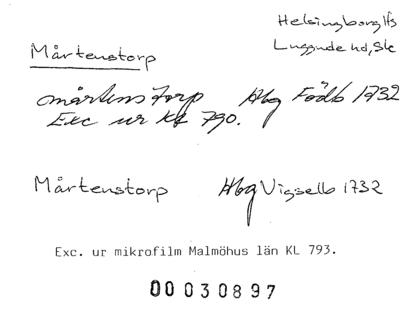 Helsingborg lfs
Luggude hd, Sk
Mårtenstorp
Mårtenstorp Hbg Födb 1732
Exc ur KL 790.
Mårtenstorp Hbg Vigselb 1732
Exc. ur mikrofilm Malmöhus län KL 793.
00030897